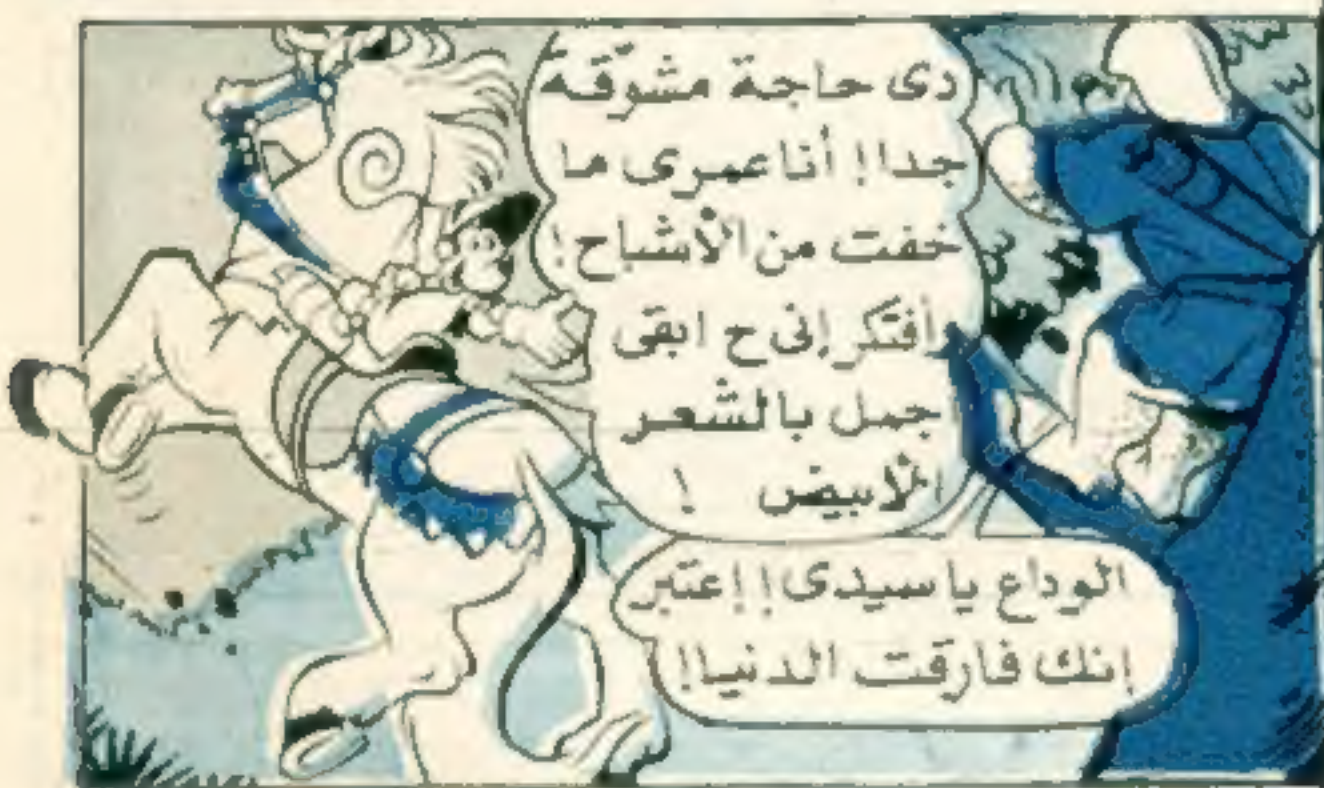 دى حاجة مشوّقة
جدا! أنا عمرى ما
خفت من الأشباح!
أفتكر إنى ح ابقى
جمل بالشعر
الأبيض !
الوداع يا سيدى!! إعتبر
إنك فارقت الدنيا!!